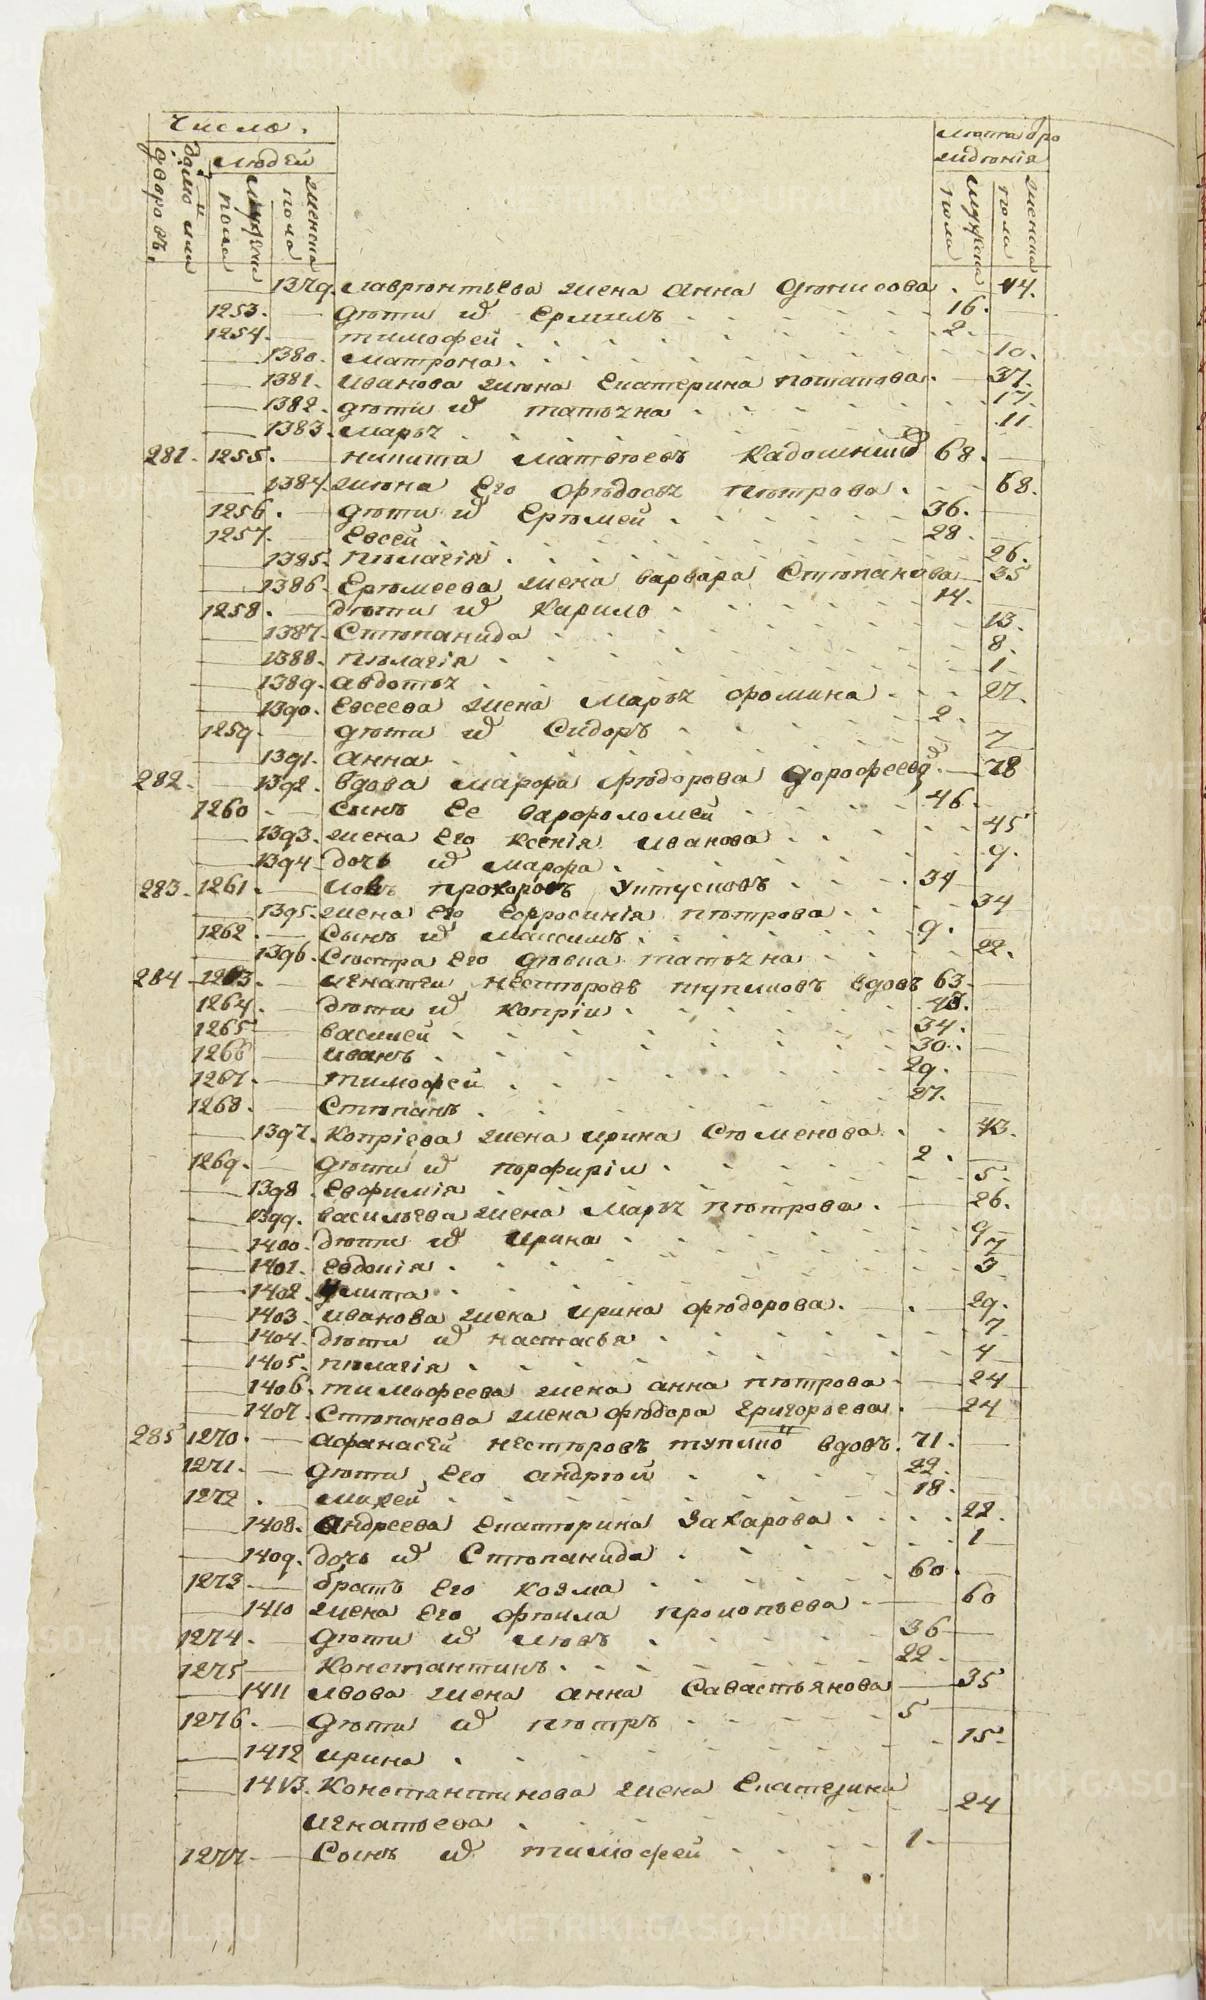 METRIKI.GASO-URAL.RU
Число. Лѣта отро
людей ждѣнія
домовъ или дворовъ. мужеска пола женска пола мужеска пола женска пола
1379. Лаврѣнтьева жена Анна Дѣнисова . 44.
1253. — дѣти их Ермилъ 16. —
1254. — Тимофей 2. —
— 1380. Матрона. 10.
— 1381. Иванова жѣна Екатерина Потапова. — 37.
— 1382. дѣти их Татьяна 17.
— 1383. Марья 11.
281. 1255. — Никита Матвѣевъ 68. —
— 1384. жѣна Его Фѣдосья Пѣтрова . 68.
1256. — дѣти их Ерѣмей 36. —
1257. — Евсей 28. —
— 1385. Пѣлагія 26.
— 1386. Ерѣмеева жена Варвара Стѣпанова — 35
1258. — дѣти их Кирило 14. —
— 1387. Стѣпанида 13.
— 1388. Пѣлагія 8.
— 1389. Авдотья 1
— 1390. Евсеева жена Марья Фомина 27.
1259. — дѣти их Сидоръ 2. —
— 1391. Анна 7
282. — 1392. Вдова Марфа Фѣдорова Дорофеева — 78
1260 — Сынъ Ее Варфоломей 46. —
— 1393. жена Его Ксенія Иванова 45
— 1394 дочь их Марфа 9.
283. 1261. — Прохоровъ 34 —
— 1395. жена Его Ефросинія Пѣтрова 34
1262. — Сынъ их Максимъ 9. —
— 1396. Сѣстра Его дѣвка Татьяна 22.
284 1263. — Игнатей Нестѣровъ вдовъ 63. —
1264. — дѣти их Копріи 43. —
1265 — Василей 34. —
1266 — Иванъ 30. —
1267. — Тимофей 29. —
1268. — Стѣпанъ 27. —
— 1397. Копріева жена Ирина Сѣменова 43.
1269. — дѣти их Порфиріи 2. —
— 1398. Евфимія 5.
— 1399. Васильева жена Марья Пѣтрова . — 26.
— 1400. дѣти их Ирина 9
— 1401. Евдокія 7
— 1402. Улита 3
— 1403. Иванова жена Ирина Фѣдорова. 29.
— 1404. дѣти их Настасья 7
— 1405. Пѣлагія 4
— 1406. Тимофеева жена Анна Пѣтрова — 24
— 1407. Стѣпанова жена Фѣдора Григорьева. — 24
285 1270. — Афанасей Нестѣровъ вдовъ. 71. —
1271. — дѣти Его Андрѣй 22. —
1272 . — Михей 18. —
— 1408. Андреева Екатѣрина Захарова 22.
— 1409. дочь их Стѣпанида 1
1273. — братъ Его Козма 60. —
— 1410 жена Его Фѣкла Прокопьева — 60
1274. — дѣти их Лѣвъ 36 —
1275 — Константинъ 22. —
— 1411 Львова жена Анна Савастьянова — 35
1276. — дѣти их Пѣтръ 5 —
— 1412 Ирина 15.
— 1413. Константинова жена Екатерина
Игнатьева 24
1277. — Сынъ их Тимофей 1. —